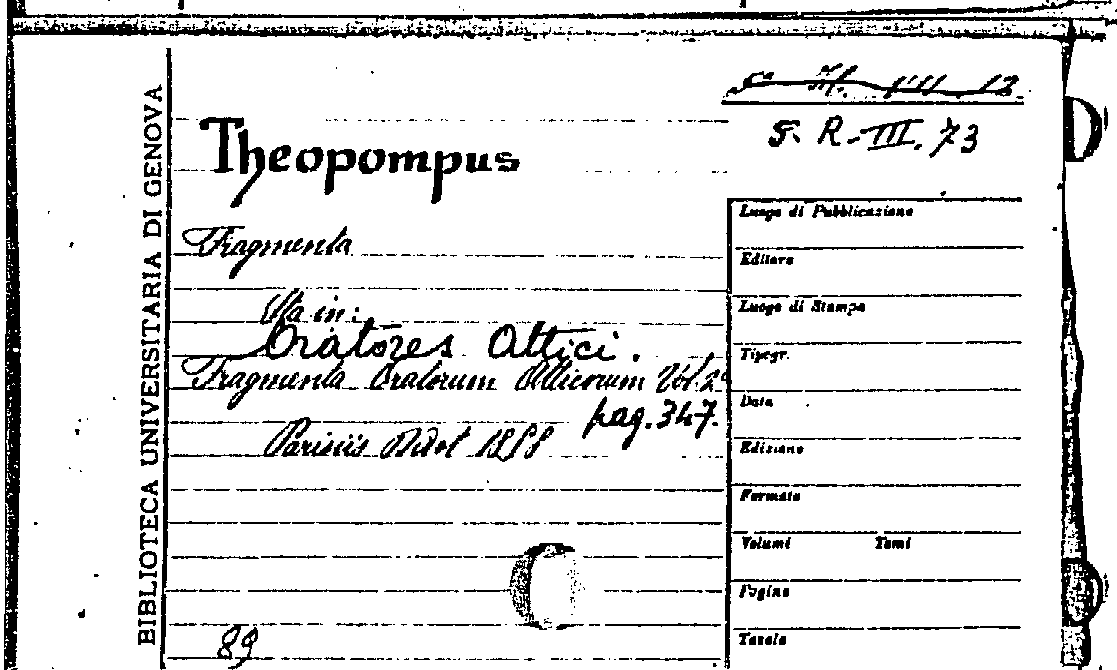 BIBLIOTECA UNIVERSITARIA DI GENOVA
5. R-III. 73
Theopompus
Fragmenta
Sta in:
Oratores Attici.
Fragmenta Oratorum Atticorum Vol. 2º
pag. 347.
Parisiis Didot 1858
89
Luogo di Pubblicazione
Editore
Luogo di Stampa
Tipogr.
Data
Edizione
Formato
Volumi Tomi
Pagine
Tavole